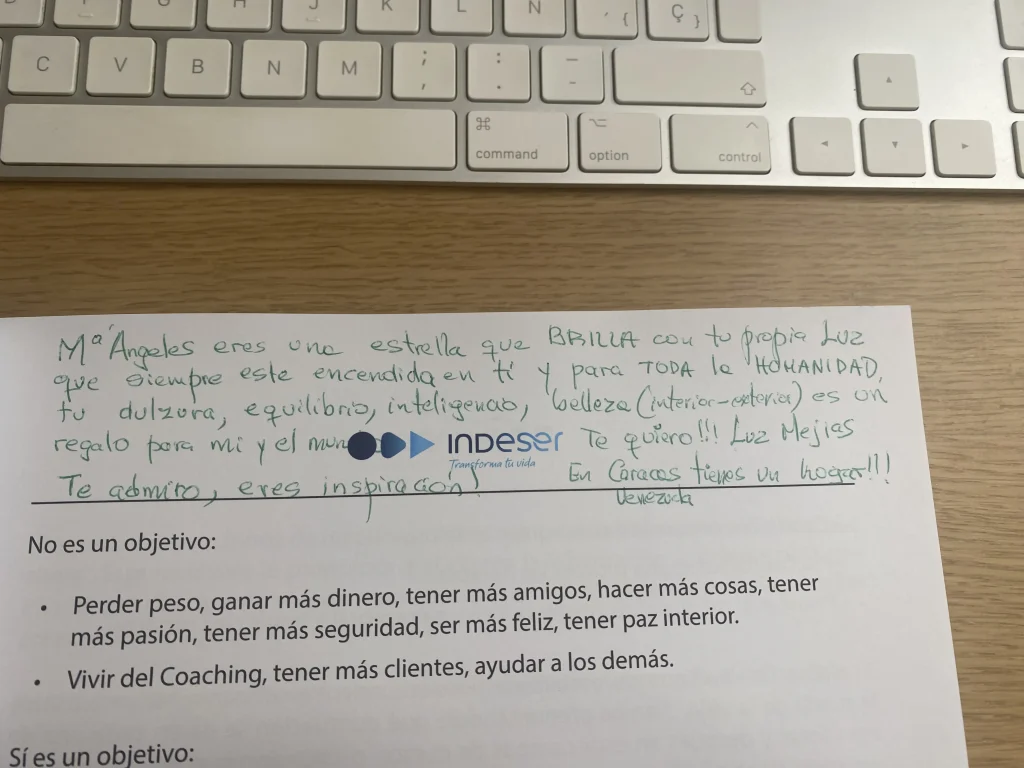 Ç }
C V B N M ; , : . - -
⌘ command ⌥ option ^ control
Mª Ángeles eres una estrella que BRILLA con tu propia Luz
que siempre este encendida en ti y para TODA la HUMANIDAD,
tu dulzura, equilibrio, inteligencia, belleza (interior-exterior) es un
regalo para mi y el INDESER Te quiero!!! Luz Mejias
Transforma tu vida
Te admiro, eres inspiración! En Caracas tienes un hogar!!!
Venezuela
No es un objetivo:
• Perder peso, ganar más dinero, tener más amigos, hacer más cosas, tener
más pasión, tener más seguridad, ser más feliz, tener paz interior.
• Vivir del Coaching, tener más clientes, ayudar a los demás.
Sí es un objetivo: